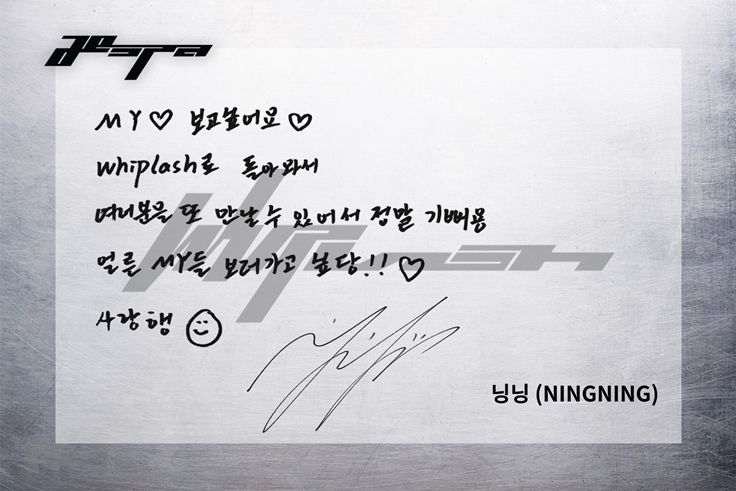 aespa
MY♡ 보고싶어요♡
Whiplash로 돌아와서
여러분을 또 만날 수 있어서 정말 기뻐용
얼른 MY들 보러가고 싶당!! ♡
사랑행
Whiplash
닝닝 (NINGNING)